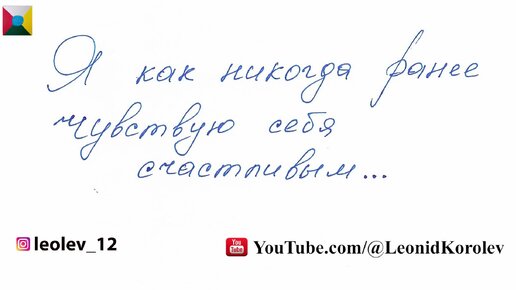 Я как никогда ранее
чувствую себя
счастливым...
leolev_12
You Tube YouTube.com/@LeonidKorolev